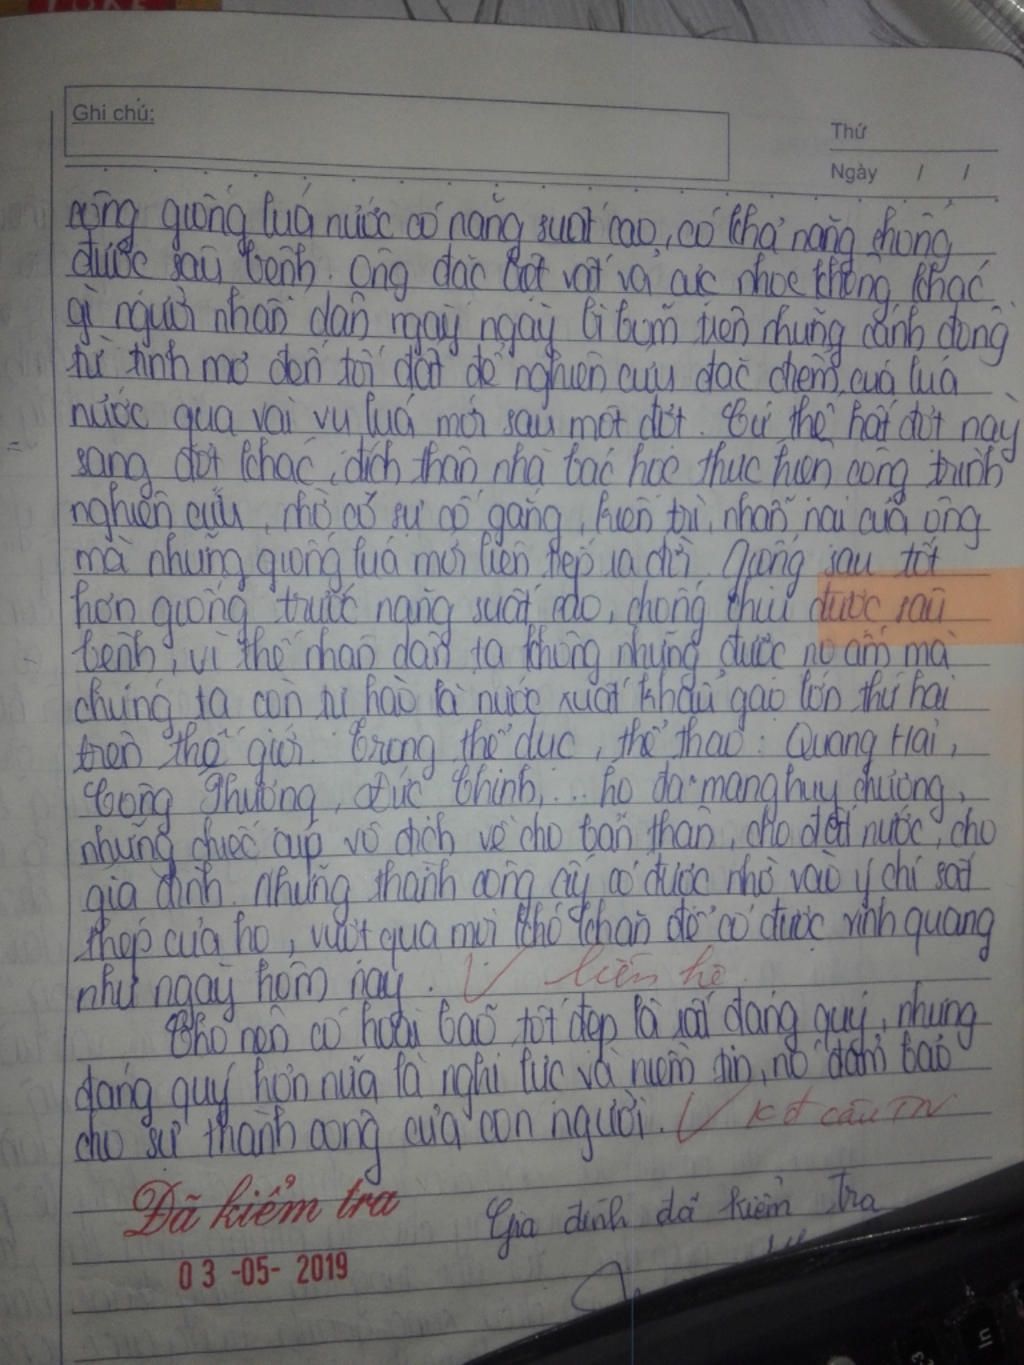 Ghi chú:
Thứ
Ngày / /
công giống luá nước có năng suất cao, có khả năng chống
được sâu bệnh. Ông đặc biệt vất vả cực nhọc không khác
gì người nhân dân ngày ngày lì bùn trên những cánh đồng
từ tinh mơ đến tối đất để nghiên cứu đặc điểm của luá
nước qua vài vụ luá mới sau một đợt. Cứ thế hất đợt này
sang đợt khác, đích thân nhà bác học thực hiện công trình
nghiên cứu, nhờ có sự cố gắng, kiên trì, nhẫn nại của ông
mà những giống luá mới liên tiếp ra đời. Giống sau tốt
hơn giống trước năng suất cao, chống chịu được sâu
bệnh, vì thế nhân dân ta không những được no ấm mà
chúng ta còn tự hào là nước xuất khẩu gạo lớn thứ hai
trên thế giới. Trong thể dục, thể thao: Quang Hải,
Công Phượng, Đức Chinh,... họ đã mang huy chương,
những chiếc cúp vô địch về cho bản thân, cho đất nước, cho
gia đình. Những thành công ấy có được nhờ vào ý chí sắt
thép của họ, vượt qua mọi khó khăn để có được vinh quang
như ngày hôm nay. V liên hệ
Cho nên có hoài bão tốt đẹp là rất đáng quý, nhưng
đáng quý hơn nữa là nghị lực và niềm tin, nó đảm bảo
cho sự thành công của con người. V Kđ câu TN
Đã kiểm tra
Gia đình đã kiểm tra
03 -05- 2019